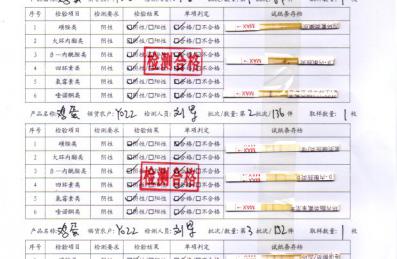 序号 检验项目 检测要求 检验结果 单项判定 试纸条存档
1 磺胺类 阴性 ☑阴性/□阳性 ☑合格/□不合格
2 大环内酯类 阴性 ☑阴性/□阳性 ☑合格/□不合格
3 β-内酰胺类 阴性 ☑阴性/□阳性 ☑合格/□不合格 MAX
4 四环素类 阴性 ☑阴性/□阳性 ☑合格/□不合格
5 氟霉素类 阴性 ☑阴性/□阳性 ☑合格/□不合格
6 喹诺酮类 阴性 ☑阴性/□阳性 ☑合格/□不合格 MAX
检测合格
产品名称: 鸡蛋 供货农户: Y022 检测人员: 批次/数量: 第2批次/136件 取样数量: 1 枚
序号 检验项目 检测要求 检验结果 单项判定 试纸条存档
1 磺胺类 阴性 ☑阴性/□阳性 ☑合格/□不合格 MAX
2 大环内酯类 阴性 ☑阴性/□阳性 ☑合格/□不合格
3 β-内酰胺类 阴性 ☑阴性/□阳性 ☑合格/□不合格 MAX
4 四环素类 阴性 ☑阴性/□阳性 ☑合格/□不合格
5 氟霉素类 阴性 ☑阴性/□阳性 ☑合格/□不合格
6 喹诺酮类 阴性 ☑阴性/□阳性 ☑合格/□不合格 MAX
检测合格
产品名称: 鸡蛋 供货农户: Y022 检测人员: 批次/数量: 第3批次/132件 取样数量: 1 枚
序号 检验项目 检测要求 检验结果 单项判定 试纸条存档